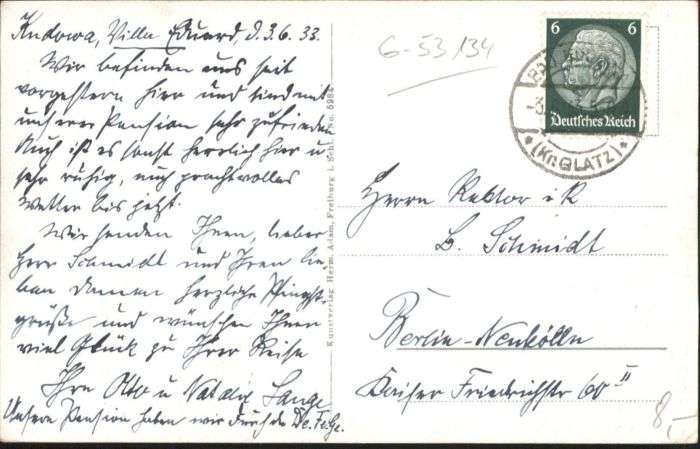 Kudowa, Villa Eduard, d. 3.6.33.
Wir befinden uns seit
vorgestern hier und sind mit
unserer Pension sehr zufrieden
Auch ist es sonst herrlich hier u
sehr ruhig, auch prachtvolles
Wetter bis jetzt.
Wir senden Ihnen, lieber
Herr Schmidt und Ihren lie
ben Damen herzliche Pfingst-
grüße und wünschen Ihnen
viel Glück zu Ihrer Reise
Ihre Otto u Natalie Lange
Unsere Pension haben wir durch die De.Fe.Ge.
Kunstverlag Herm. Adam, Freiburg i. Schl. No. 5984
6-53/34
6 6
Deutsches Reich
(Kr. GLATZ)
Herrn Rektor i R
B. Schmidt
Berlin-Neukölln
Kaiser Friedrichstr 60 II
8,-